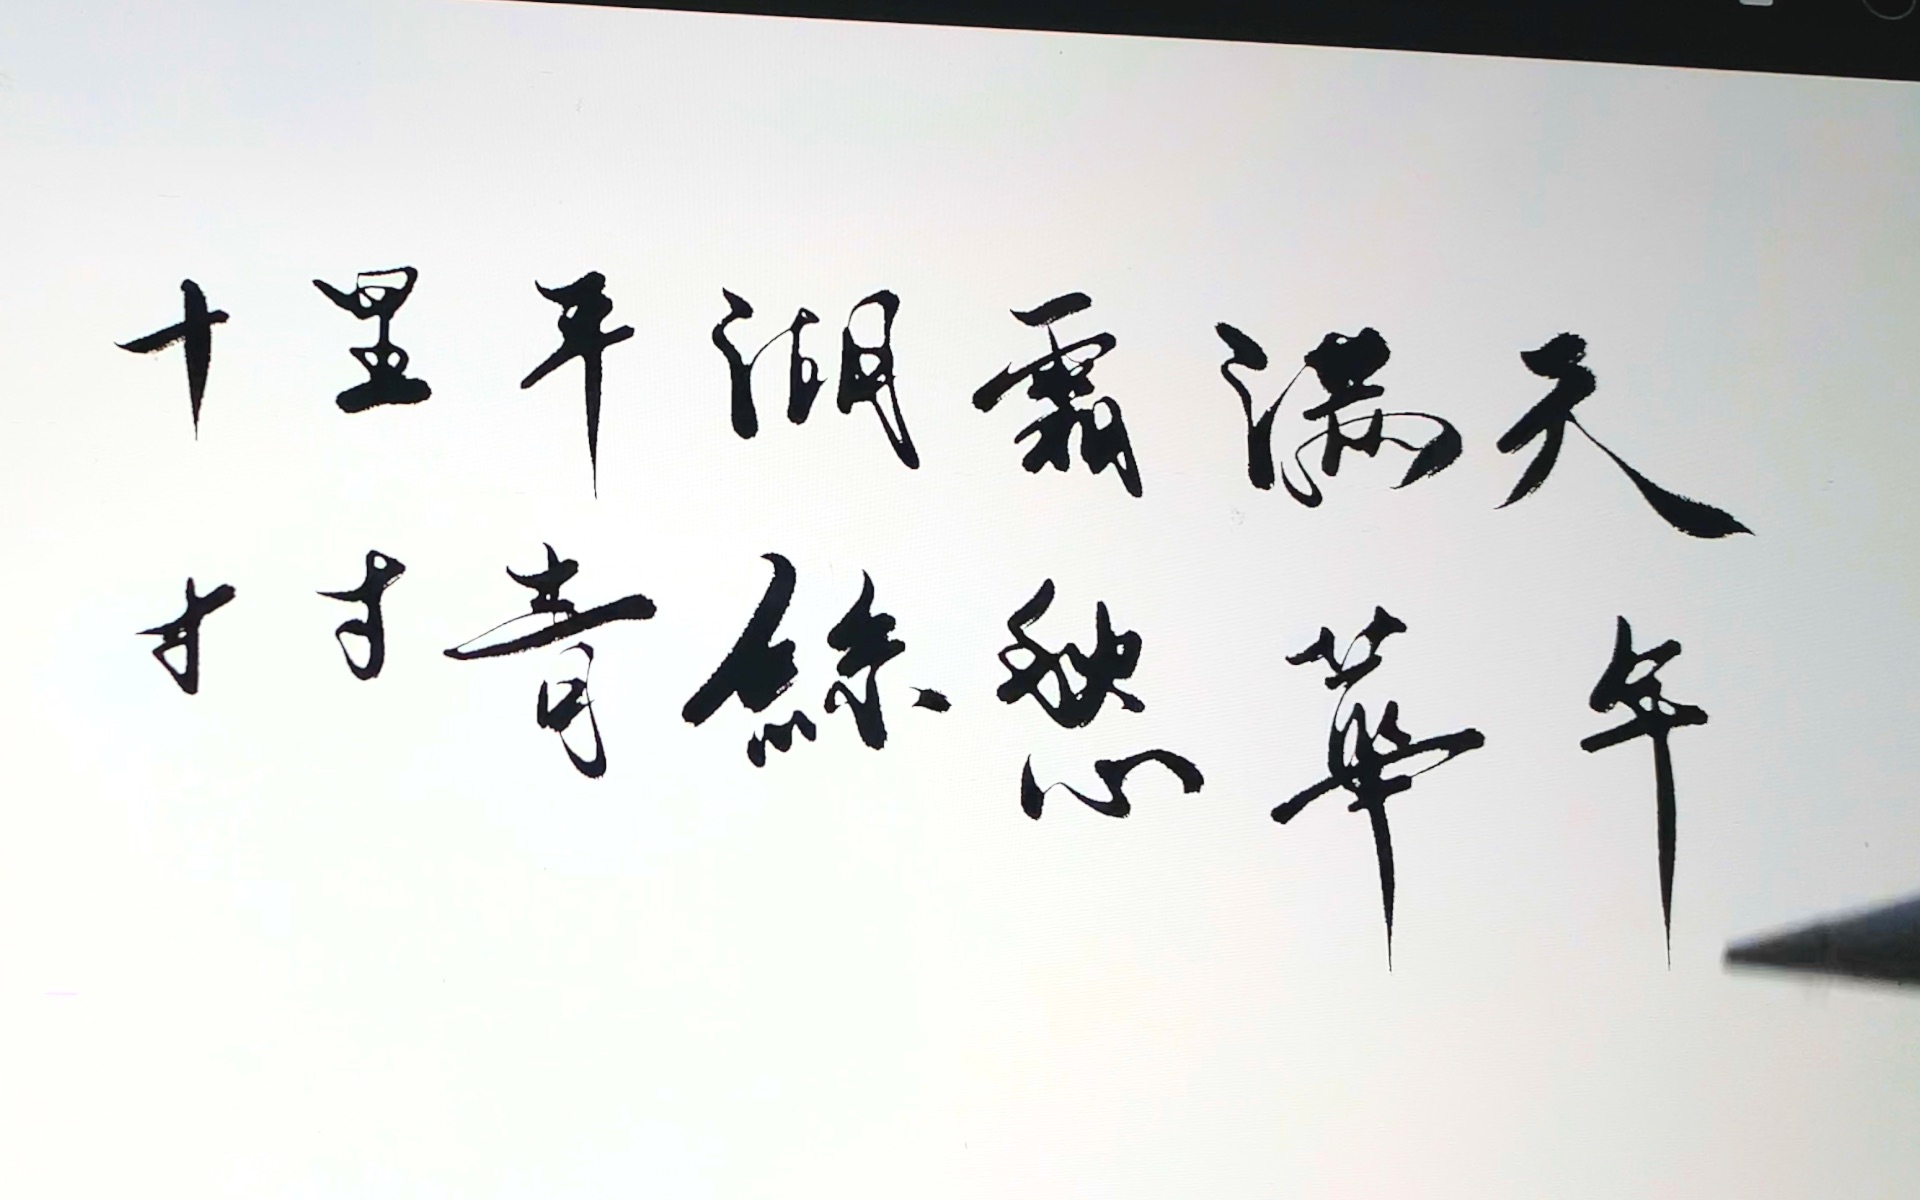 十里平湖霜满天
寸寸青絲愁華年